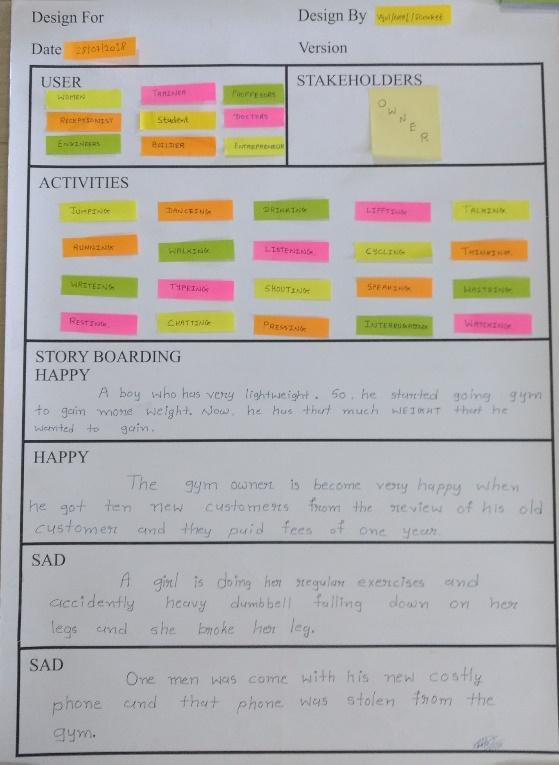 Design For
Design By
Date 28/07/2018
Version
USER
WOMEN TRAINER PROFFESORS
RECEPSIONIST Student DOCTORS
ENGINEERS BUILDER ENTREPRENEUR
STAKEHOLDERS
OWNER
ACTIVITIES
JUMPING DANCEING DRINKING LIFFTING TALKING
RUNNING WALKING LISTENING CYCLING THINKING
WRITEING TYPEING SHOUTING SPEAKING WAITEING
RESTING CHATTING PRESSING INTERRUGATING WATCHING
STORY BOARDING
HAPPY
A boy who has very lightweight. So, he started going gym
to gain more weight. Now, he has that much WEIGHT that he
wanted to gain.
HAPPY
The gym owner is become very happy when
he got ten new customers from the review of his old
customer and they paid fees of one year.
SAD
A girl is doing her regular exercises and
accidently heavy dumbbell falling down on her
legs and she broke her leg.
SAD
One men was come with his new costly
phone and that phone was stolen from the
gym.